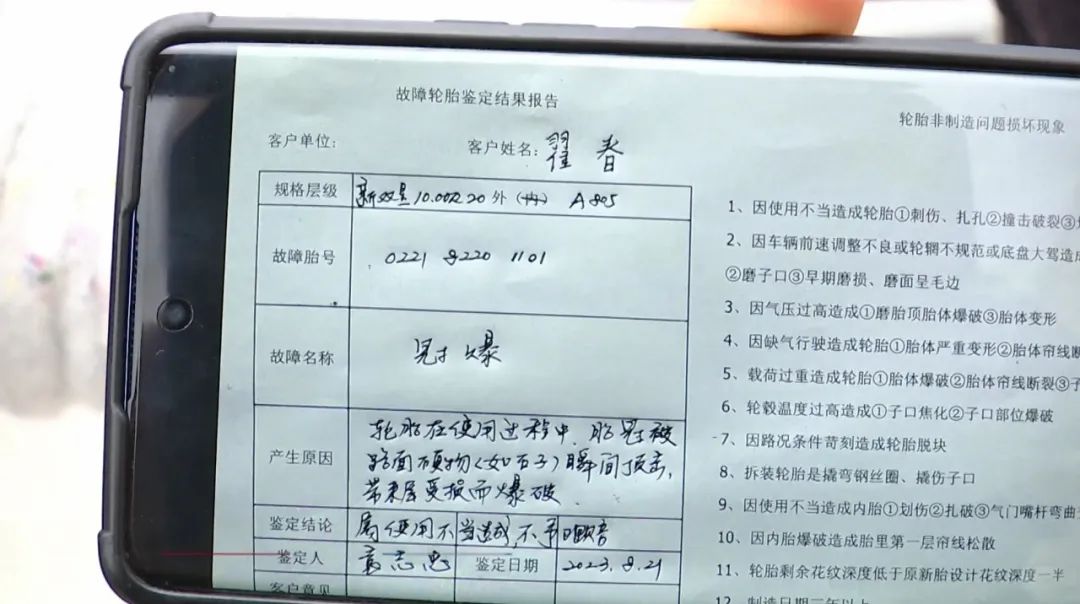 故障轮胎鉴定结果报告
客户单位:
客户姓名: 翟春
规格层级 新双星10.00R20 外(内) A805
故障胎号 0221 8220 1101
故障名称 冠爆
产生原因 轮胎在使用过程中、胎冠被
路面硬物(如石子)瞬间顶击,
带来层受损而爆破.
鉴定结论 属使用不当造成 不予理赔
鉴定人 志忠 鉴定日期 2023.8.21
客户意见
轮胎非制造问题损坏现象
1、因使用不当造成轮胎①刺伤、扎孔②撞击破裂③
2、因车辆前速调整不良或轮辋不规范或底盘大驾造成
②磨子口③早期磨损、磨面呈毛边
3、因气压过高造成①磨胎顶胎体爆破③胎体变形
4、因缺气行驶造成轮胎①胎体严重变形②胎体帘线断
5、载荷过重造成轮胎①胎体爆破②胎体帘线断裂③子
6、轮毂温度过高造成①子口焦化②子口部位爆破
7、因路况条件苛刻造成轮胎脱块
8、拆装轮胎是撬弯钢丝圈、撬伤子口
9、因使用不当造成内胎①划伤②扎破③气门嘴杆弯曲
10、因内胎爆破造成胎里第一层帘线松散
11、轮胎剩余花纹深度低于原新胎设计花纹深度一半
12、制造日期三年以上